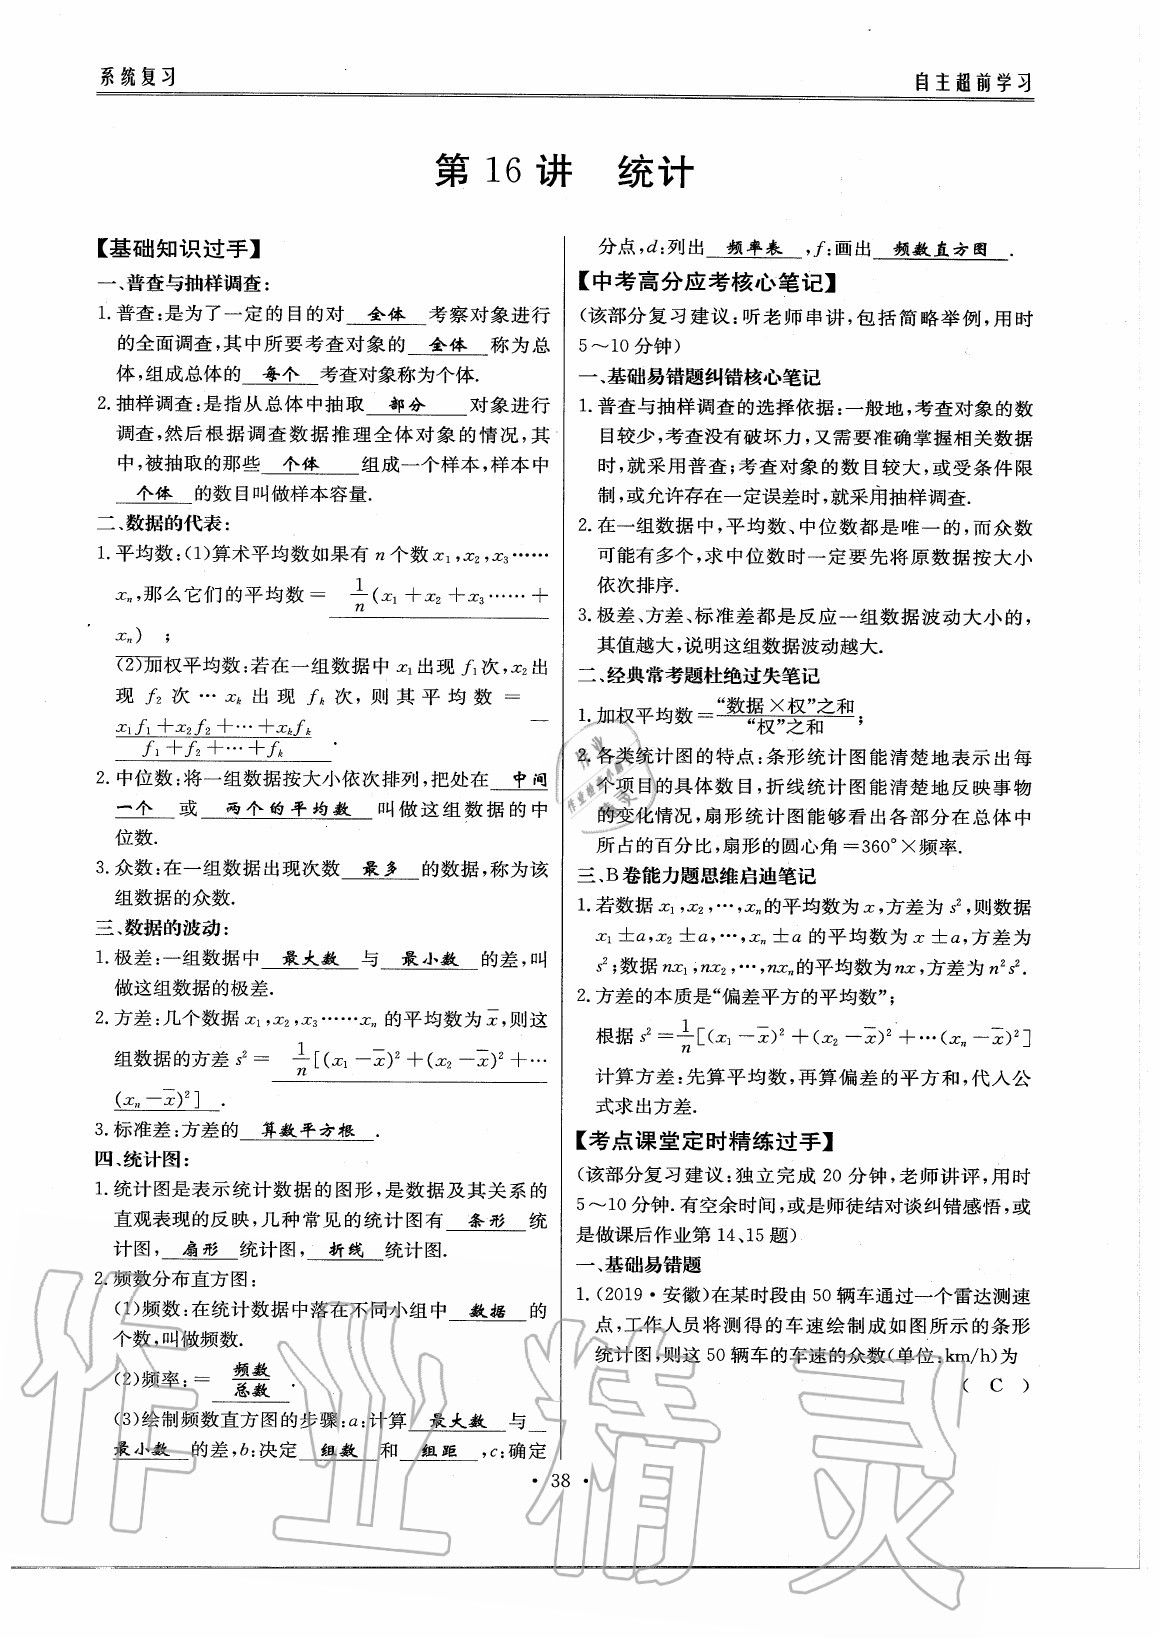 系统复习
自主超前学习
第 16 讲　统计
【基础知识过手】
一、普查与抽样调查:
1. 普查:是为了一定的目的对 全体 考察对象进行
的全面调查,其中所要考查对象的 全体 称为总
体,组成总体的 每个 考查对象称为个体.
2. 抽样调查:是指从总体中抽取 部分 对象进行
调查,然后根据调查数据推理全体对象的情况,其
中,被抽取的那些 个体 组成一个样本,样本中
个体 的数目叫做样本容量.
二、数据的代表:
1. 平均数:(1)算术平均数如果有 n 个数 x₁,x₂,x₃……
xₙ,那么它们的平均数= 1/n(x₁+x₂+x₃……+
xₙ) ;
(2)加权平均数:若在一组数据中 x₁出现 f₁次,x₂出
现 f₂ 次 … xₖ 出现 fₖ 次, 则其平均数 =
(x₁f₁+x₂f₂+…+xₖfₖ)/(f₁+f₂+…+fₖ) .
2. 中位数:将一组数据按大小依次排列,把处在 中间
一个 或 两个的平均数 叫做这组数据的中
位数.
3. 众数:在一组数据出现次数 最多 的数据,称为该
组数据的众数.
三、数据的波动:
1. 极差:一组数据中 最大数 与 最小数 的差,叫
做这组数据的极差.
2. 方差:几个数据 x₁,x₂,x₃……xₙ 的平均数为 x̄,则这
组数据的方差 s²= 1/n[(x₁-x̄)²+(x₂-x̄)²+…
(xₙ-x̄)²] .
3. 标准差:方差的 算数平方根 .
四、统计图:
1. 统计图是表示统计数据的图形,是数据及其关系的
直观表现的反映,几种常见的统计图有 条形 统
计图, 扇形 统计图, 折线 统计图.
2. 频数分布直方图:
(1)频数:在统计数据中落在不同小组中 数据 的
个数,叫做频数.
(2)频率:= 频数/总数 .
(3)绘制频数直方图的步骤:a:计算 最大数 与
最小数 的差,b:决定 组数 和 组距 ,c:确定
分点,d:列出 频率表 ,f:画出 频数直方图 .
【中考高分应考核心笔记】
(该部分复习建议:听老师串讲,包括简略举例,用时
5～10 分钟)
一、基础易错题纠错核心笔记
1. 普查与抽样调查的选择依据:一般地,考查对象的数
目较少,考查没有破坏力,又需要准确掌握相关数据
时,就采用普查;考查对象的数目较大,或受条件限
制,或允许存在一定误差时,就采用抽样调查.
2. 在一组数据中,平均数、中位数都是唯一的,而众数
可能有多个,求中位数时一定要先将原数据按大小
依次排序.
3. 极差、方差、标准差都是反应一组数据波动大小的,
其值越大,说明这组数据波动越大.
二、经典常考题杜绝过失笔记
1. 加权平均数=“数据×权”之和/“权”之和;
2. 各类统计图的特点:条形统计图能清楚地表示出每
个项目的具体数目,折线统计图能清楚地反映事物
的变化情况,扇形统计图能够看出各部分在总体中
所占的百分比,扇形的圆心角=360°×频率.
三、B 卷能力题思维启迪笔记
1. 若数据 x₁,x₂,…,xₙ的平均数为 x,方差为 s²,则数据
x₁±a,x₂±a,…,xₙ±a 的平均数为 x±a,方差为
s²;数据 nx₁,nx₂,…,nxₙ的平均数为 nx,方差为 n²s².
2. 方差的本质是“偏差平方的平均数”;
根据 s²=1/n[(x₁-x̄)²+(x₂-x̄)²+…(xₙ-x̄)²]
计算方差:先算平均数,再算偏差的平方和,代入公
式求出方差.
【考点课堂定时精练过手】
(该部分复习建议:独立完成 20 分钟,老师讲评,用时
5～10 分钟. 有空余时间,或是师徒结对谈纠错感悟,或
是做课后作业第 14、15 题)
一、基础易错题
1. (2019·安徽)在某时段由 50 辆车通过一个雷达测速
点,工作人员将测得的车速绘制成如图所示的条形
统计图,则这 50 辆车的车速的众数(单位:km/h)为
( C )
· 38 ·
作业精灵